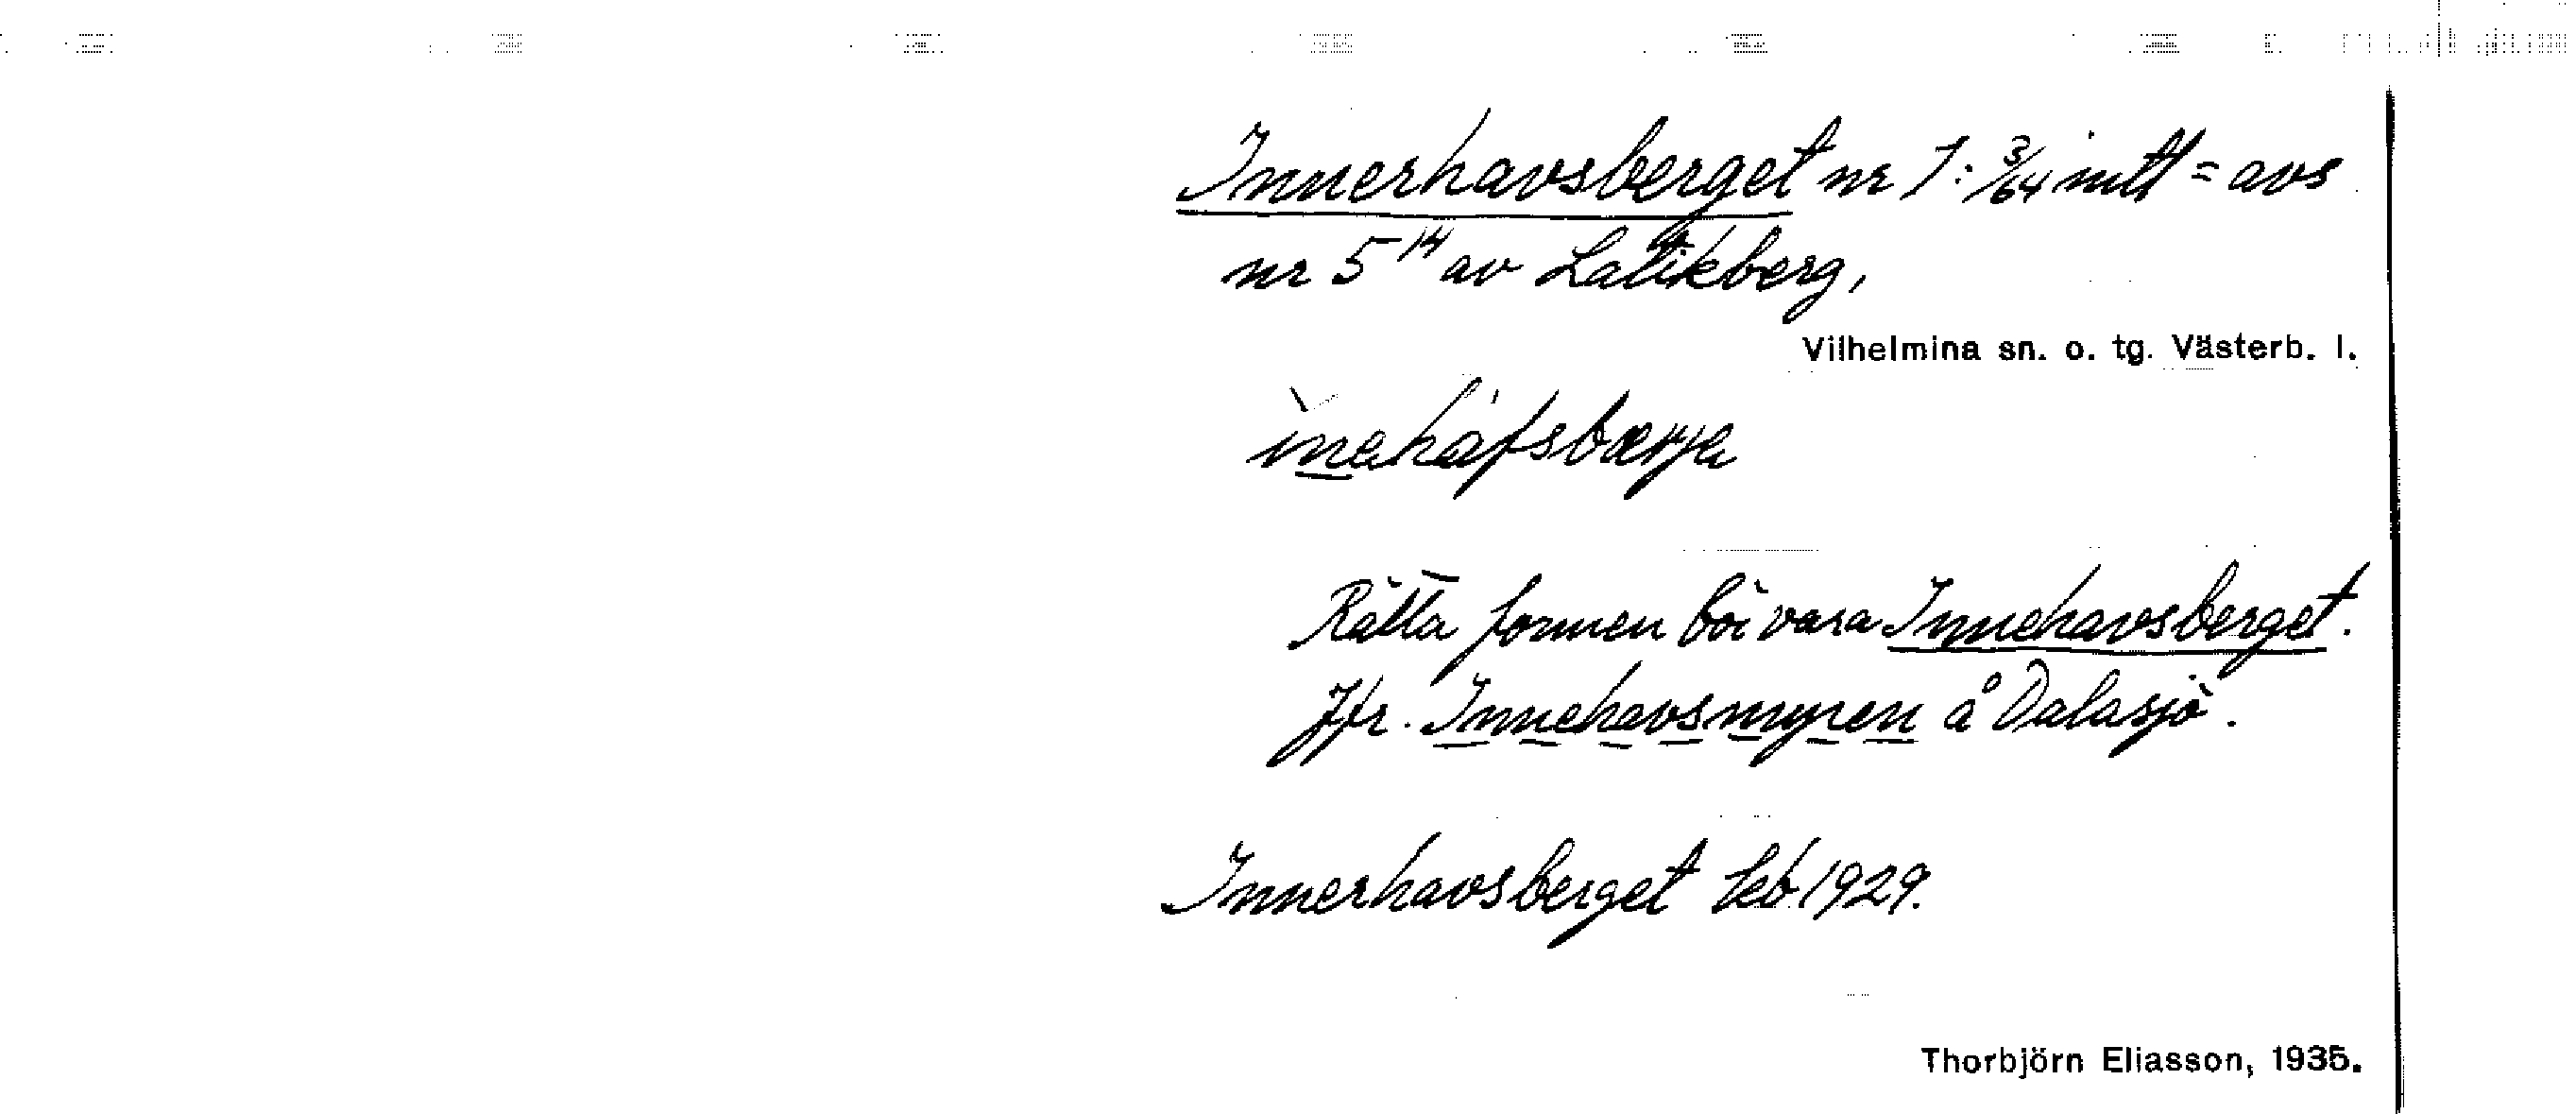 Innerhavsberget nr 1: 3/64 mtl = avs
nr 5¹⁴ av Latikberg,
Vilhelmina sn. o. tg. Västerb. l.
inahafsbærja
Rätta formen bör vara Innehavsberget.
Jfr. Innehavsmyren å Dalasjö.
Innerhavsberget Jeb 1929.
Thorbjörn Eliasson, 1935.